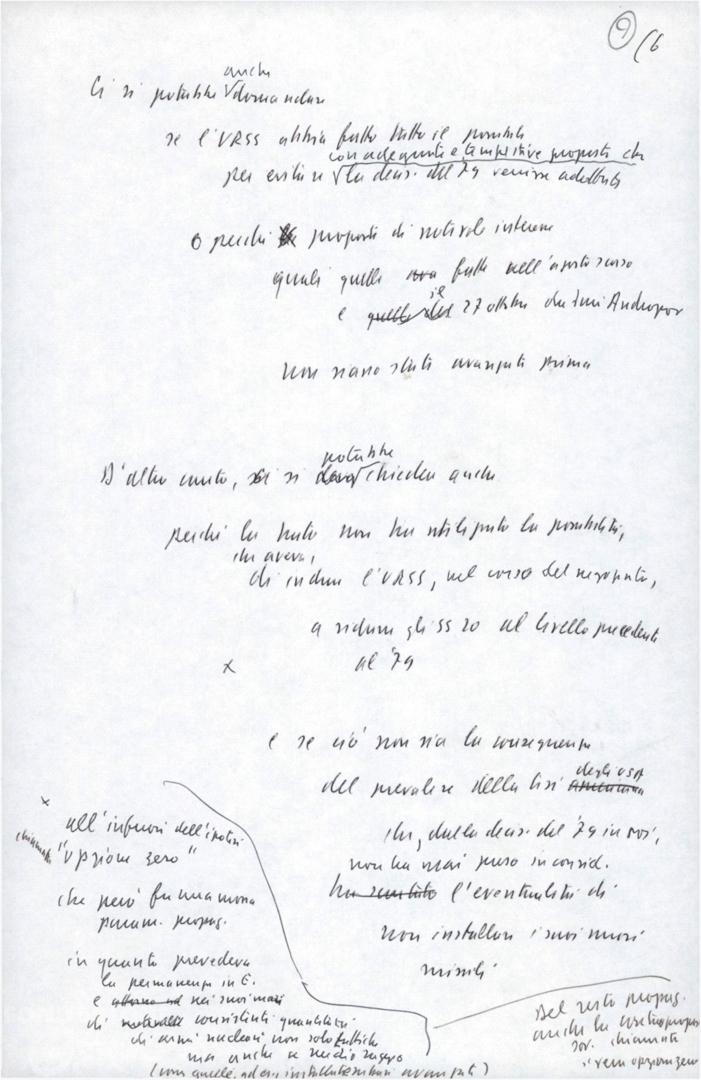 9/6
anche
Ci si potrebbe √domandare
se l'URSS abbia fatto tutto il possibile
con adeguate e tempestive proposte che
per evitare √la decis. del '79 venisse adottata
o perché proposte di notevole interesse
quali quelle fatte nell'agosto scorso
il
e quelle del 27 ottobre da Juri Andropov
non siano state avanzate prima
potrebbe
D'altro canto, ci si √chiedere anche
perché la Nato non ha utilizzato la possibilità,
che aveva,
di indurre l'URSS, nel corso del negoziato,
a ridurre gli SS 20 al livello precedente
x al '79
e se ciò non sia la conseguenza
degli USA
del prevalere della tesi americana
che, dalla decis. del '79 in poi,
non ha mai preso in consid.
l'eventualità di
non installare i suoi nuovi
missili
x
all'infuori dell'ipotesi
chiamata
"opzione zero"
che però fu una mossa
param. propag.
in quanto prevedeva
la permanenza in E.
e nei suoi mari
di consistenti quantitativi
di armi nucleari non solo tattiche
ma anche a medio raggio
(con quelle, ad es., installate
Del resto propag.
anche la
sov. chiamata
vera opzione zero